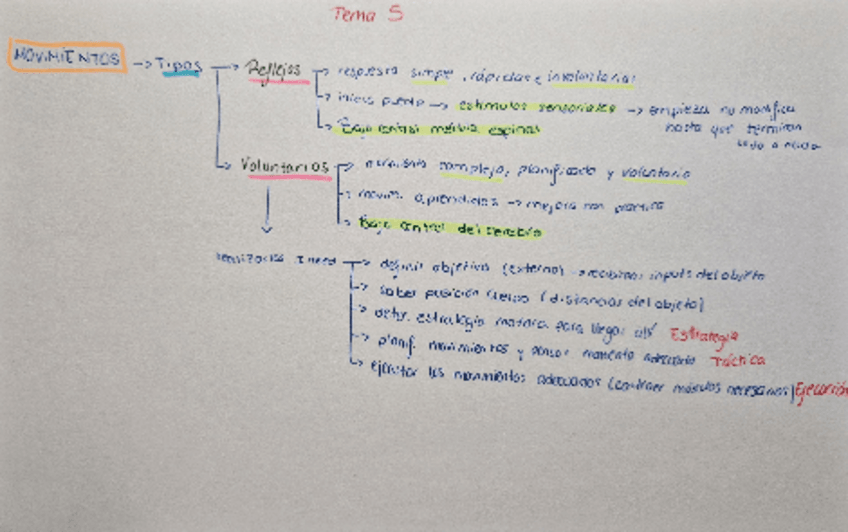 Tema 5
MOVIMIENTOS → Tipos → Reflejos → respuesta simple, rápidas e involuntarias
→ estímulos sensoriales → empieza no modifica
hasta que termina
todo o nada
Bajo control médula espinal
Voluntarios → movimiento complejo, planificado y voluntario
→ movim. aprendidos → mejora con práctica
→ Bajo control del cerebro
→ definir objetivo (externo) → recibimos inputs del objeto
→ saber posición cuerpo (distancias del objeto)
→ deter. estrategia motora para llegar allí Estrategia
→ planif. movimientos y pensar momento adecuado Táctica
→ ejecutar los movimientos adecuados (contraer músculos necesarios) Ejecución